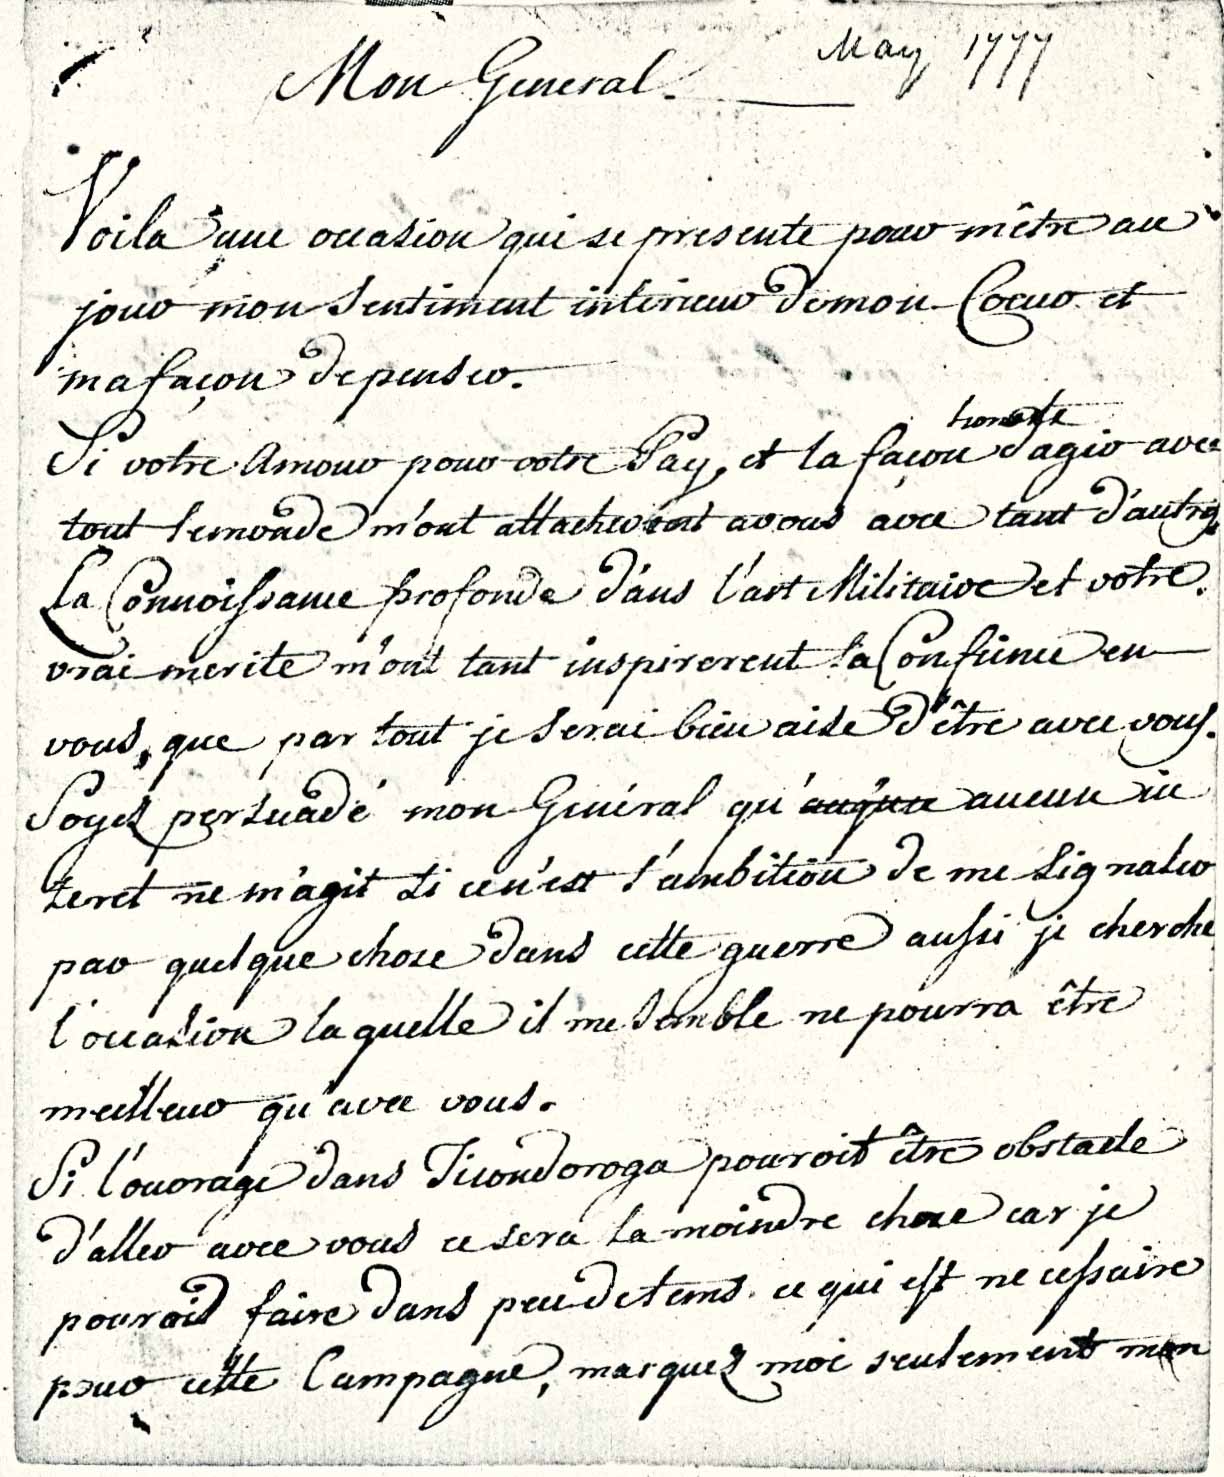 May 1777
Mon General.
Voila une occasion qui se presente pour mêtre au
jour mon sentiment interieur demon Coeur et
ma façon depenser.
Si votre Amour pour votre Pay, et la façon honette d'agir avec
tout lemonde m'ont attacherent avous avec tant d'autres
La Connoissance profonde dáns l'art Militaire et votre
vrai merite m'ont tant inspirerent la Confience en
vous, que par tout je serai bien aise d'être avec vous.
Soyes persuadé mon Général qu'aucune aucun in
teret ne m'agit si ce n'est l'ambition de me signaler
par quelque chose dans cette guerre aussi je cherche
l'occasion la quelle il me semble ne pourra être
meilleur qu'avec vous.
Si l'ouvrage dans Ticondoroga pouroit être obstacle
d'aller avec vous ce sera la moindre chose car je
pourois faire dans peu detems ce qui est necessaire
pour cette Campagne, marquez moi seulement mon